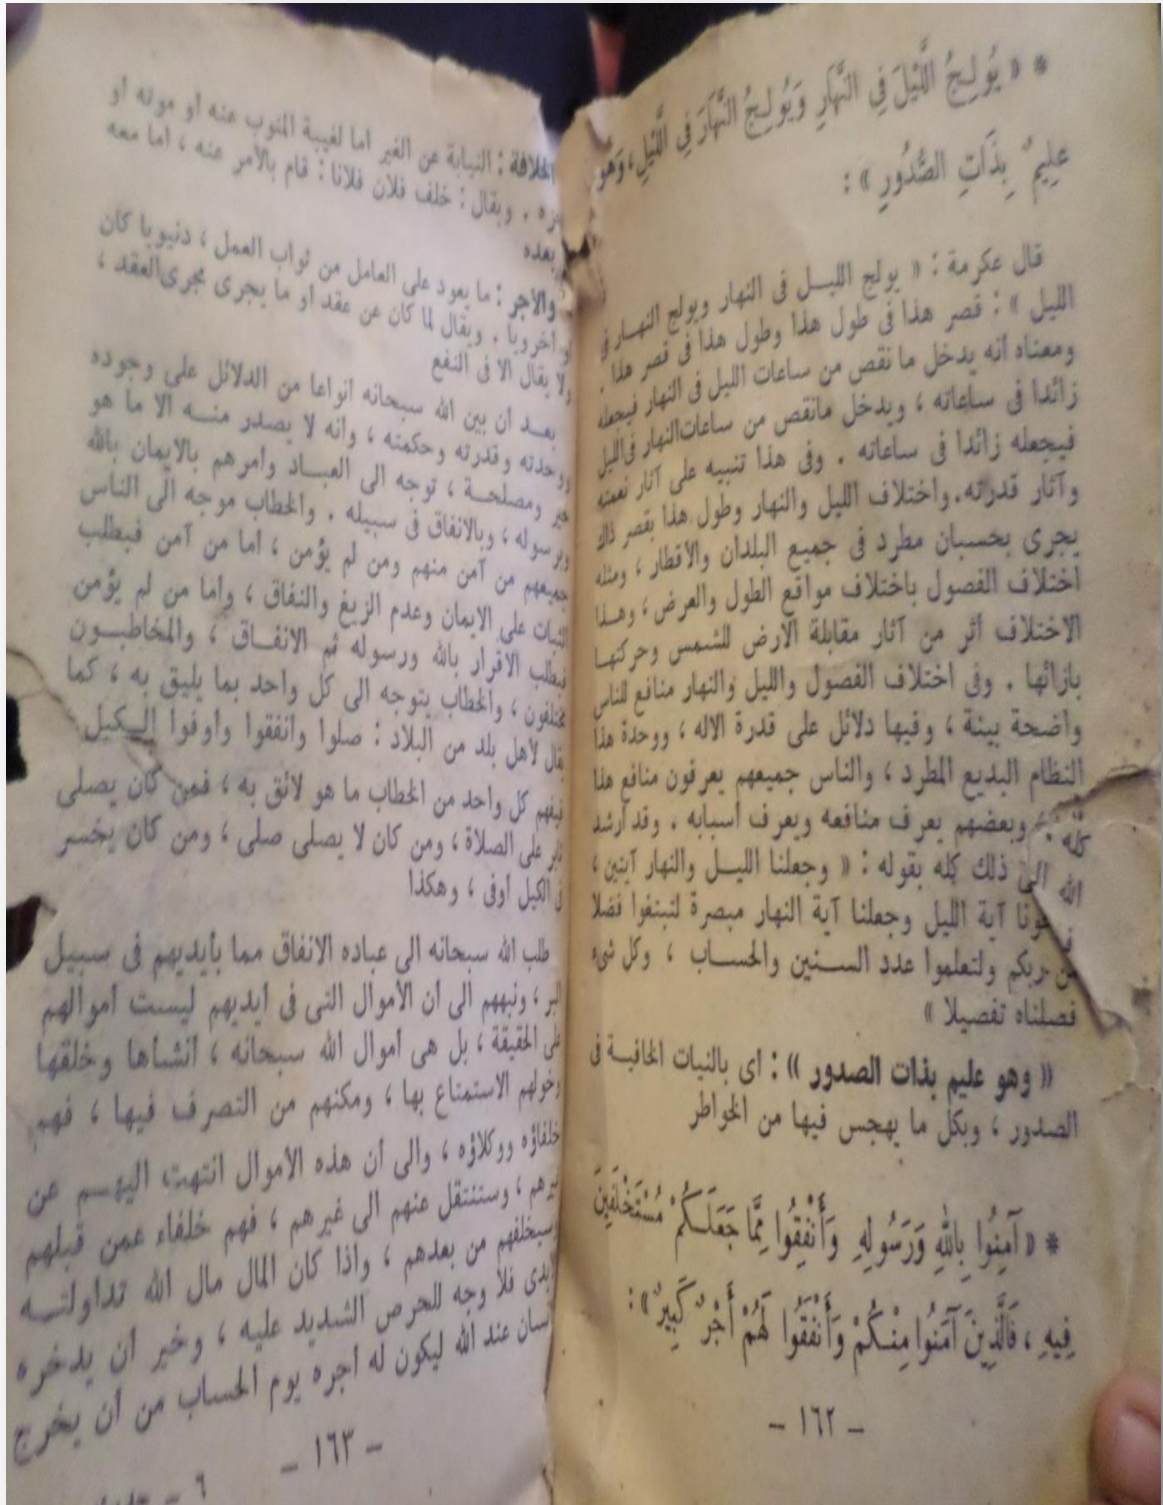 * « يُولِجُ اللَّيْلَ فِي النَّهَارِ وَيُولِجُ النَّهَارَ فِي اللَّيْلِ، وَهُوَ
عَلِيمٌ بِذَاتِ الصُّدُورِ » :
قال عكرمة : « يولج الليل فى النهار ويولج النهار فى
الليل » : قصر هذا فى طول هذا وطول هذا فى قصر هذا .
ومعناه أنه يدخل ما نقص من ساعات الليل فى النهار فيجعله
زائدا فى ساعاته ، ويدخل مانقص من ساعات النهار فى الليل
فيجعله زائدا فى ساعاته . وفى هذا تنبيه على آثار نعمته
وآثار قدرته. واختلاف الليل والنهار وطول هذا بقصر ذاك
يجرى بحسبان مطرد فى جميع البلدان والأقطار ، ومثله
اختلاف الفصول باختلاف مواقع الطول والعرض ، وهذا
الاختلاف أثر من آثار مقابلة الأرض للشمس وحركتها
بازائها . وفى اختلاف الفصول والليل والنهار منافع للناس
واضحة بينة ، وفيها دلائل على قدرة الاله ، ووحدة هذا
النظام البديع المطرد ، والناس جميعهم يعرفون منافع هذا
كله ، وبعضهم يعرف منافعه ويعرف أسبابه . وقد أرشد
الله الى ذلك كله بقوله : « وجعلنا الليل والنهار آيتين ،
آية الليل وجعلنا آية النهار مبصرة لتبتغوا فضلا
من ربكم ولتعلموا عدد السنين والحساب ، وكل شىء
فصلناه تفصيلا »
« وهو عليم بذات الصدور » : أى بالنيات الخافية فى
الصدور ، وبكل ما يهجس فيها من الخواطر
* « آمِنُوا بِاللهِ وَرَسُولِهِ وَأَنْفِقُوا مِمَّا جَعَلَكُمْ مُسْتَخْلَفِينَ
فِيهِ ، فَالَّذِينَ آمَنُوا مِنْكُمْ وَأَنْفَقُوا لَهُمْ أَجْرٌ كَبِيرٌ » :
– ١٦٢ –
الخلافة : النيابة عن الغير اما لغيبة المنوب عنه أو موته أو
. ويقال : خلف فلان فلانا : قام بالأمر عنه ، اما معه
بعده
والأجر : ما يعود على العامل من ثواب العمل ، دنيويا كان
أو أخرويا . ويقال لما كان عن عقد أو ما يجرى مجرى العقد ،
ولا يقال الا فى النفع
بعد أن بين الله سبحانه أنواعا من الدلائل على وجوده
ووحدته وقدرته وحكمته ، وأنه لا يصدر منه الا ما هو
خير ومصلحة ، توجه الى العباد وأمرهم بالايمان بالله
وبرسوله ، وبالانفاق فى سبيله . والخطاب موجه الى الناس
جميعهم من آمن منهم ومن لم يؤمن ، أما من آمن فيطلب
الثبات على الايمان وعدم الزيغ والنفاق ، وأما من لم يؤمن
فيطلب الاقرار بالله ورسوله ثم الانفاق ، والمخاطبون
مختلفون ، والخطاب يتوجه الى كل واحد بما يليق به ، كما
يقال لأهل بلد من البلاد : صلوا وأنفقوا وأوفوا الكيل
فيفهم كل واحد من الخطاب ما هو لائق به ، فمن كان يصلى
ثابر على الصلاة ، ومن كان لا يصلى صلى ، ومن كان يخسر
فى الكيل أوفى ، وهكذا
طلب الله سبحانه الى عباده الانفاق مما بأيديهم فى سبيل
البر ، ونبههم الى أن الأموال التى فى أيديهم ليست أموالهم
على الحقيقة ، بل هى أموال الله سبحانه ، أنشأها وخلقها
وخولهم الاستمتاع بها ، ومكنهم من التصرف فيها ، فهم
خلفاؤه ووكلاؤه ، والى أن هذه الأموال انتهت اليهم عن
غيرهم ، وستنتقل عنهم الى غيرهم ، فهم خلفاء عمن قبلهم
سيخلفهم من بعدهم ، واذا كان المال مال الله تداولته
أيدى فلا وجه للحرص الشديد عليه ، وخير أن يدخره
انسان عند الله ليكون له أجره يوم الحساب من أن يخرج
– ١٦٣ –
٦ –